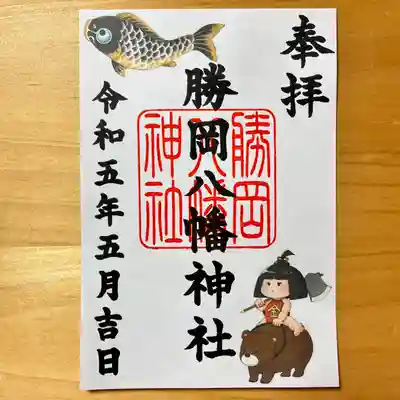 奉拝
勝岡八幡神社
勝岡
八幡
神社
令和五年五月吉日